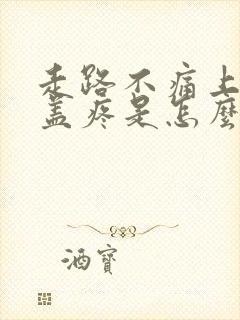 走路不痛上
盖疼是怎麼
酒寶